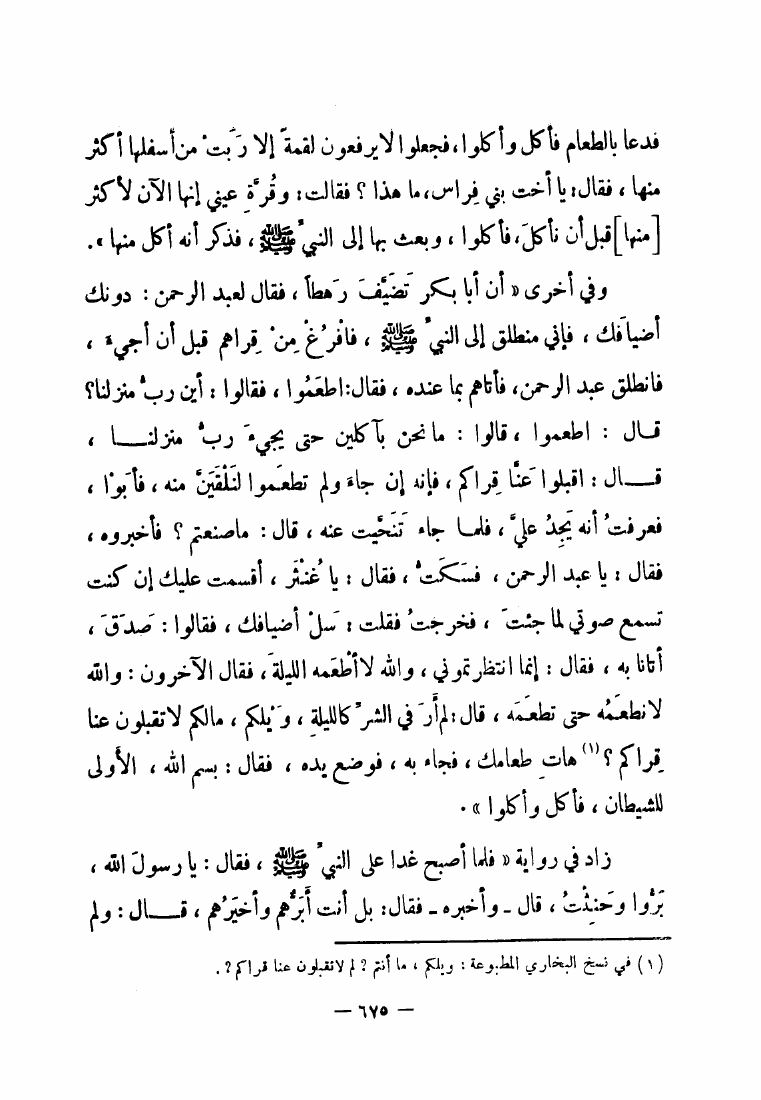 فدعا بالطعام فأكل وأكلوا، فجعلوا لايرفعون لقمةً إلا رَبَتْ من أسفلها أكثر
منها ، فقال: يا أخت بني فِراس، ما هذا ؟ فقالت: وقُرَّةِ عيني إنها الآن لأكثر
[منها] قبل أن نأكلَ، فأكلوا ، وبعث بها إلى النبيِّ ﷺ ، فذكر أنه أكل منها ».
وفي أخرى « أن أبا بكر تَضَيَّفَ رَهطاً ، فقال لعبد الرحمن : دونك
أضيافَك ، فإني منطلق إلى النبيِّ ﷺ ، فافْرُغْ مِنْ قِراهم قبل أن أجيءَ ،
فانطلق عبد الرحمن، فأتاهم بما عنده ، فقال: اطعَمُوا ، فقالوا : أين ربُّ منزلنا؟
قـال : اطعموا ، قالوا : مانحن بآكلين حتى يجيءَ ربُّ منزلنـا ،
قـال : اقبلوا عَنَّا قِراكم ، فإنه إن جاءَ ولم تطعَموا لنَلْقَيَنَّ منه ، فأَبَوْا ،
فعرفتُ أنه يَجِدُ عليَّ ، فلمـا جاء تَنَحَّيت عنه ، قال : ماصنعتم ؟ فأخبروه ،
فقال : يا عبد الرحمن ، فسَكَتُّ ، فقال : يا غُنْثَر ، أقسمت عليك إن كنت
تسمع صوتي لما جئتَ ، فخرجتُ فقلت : سَلْ أضيافك ، فقالوا : صَدَقَ ،
أتانا به ، فقال : إنما انتظرتموني ، والله لا أطْعَمه الليلةَ ، فقال الآخرون : والله
لانطعَمُه حتى تطعَمَه ، قال : لم أَرَ في الشرِّ كالليلةِ ، وَيْلكم ، مالكم لاتقبلون عنا
قِراكم ؟(١) هاتِ طعامك ، فجاء به ، فوضع يده ، فقال : بسم الله ، الأولى
للشيطان ، فأكل وأكلوا » .
زاد في رواية « فلما أصبح غدا على النبيِّ ﷺ ، فقال : يا رسولَ الله ،
بَرُّوا وحَنِثْتُ ، قال ـ وأخبره ـ فقال: بل أنت أَبَرُّهم وأخيَرُهم ، قـال : ولم
(١) في نسخ البخاري المطبوعة : ويلكم ، ما أنتم ? لم لاتقبلون عنا قراكم ?.
— ٦٧٥ —